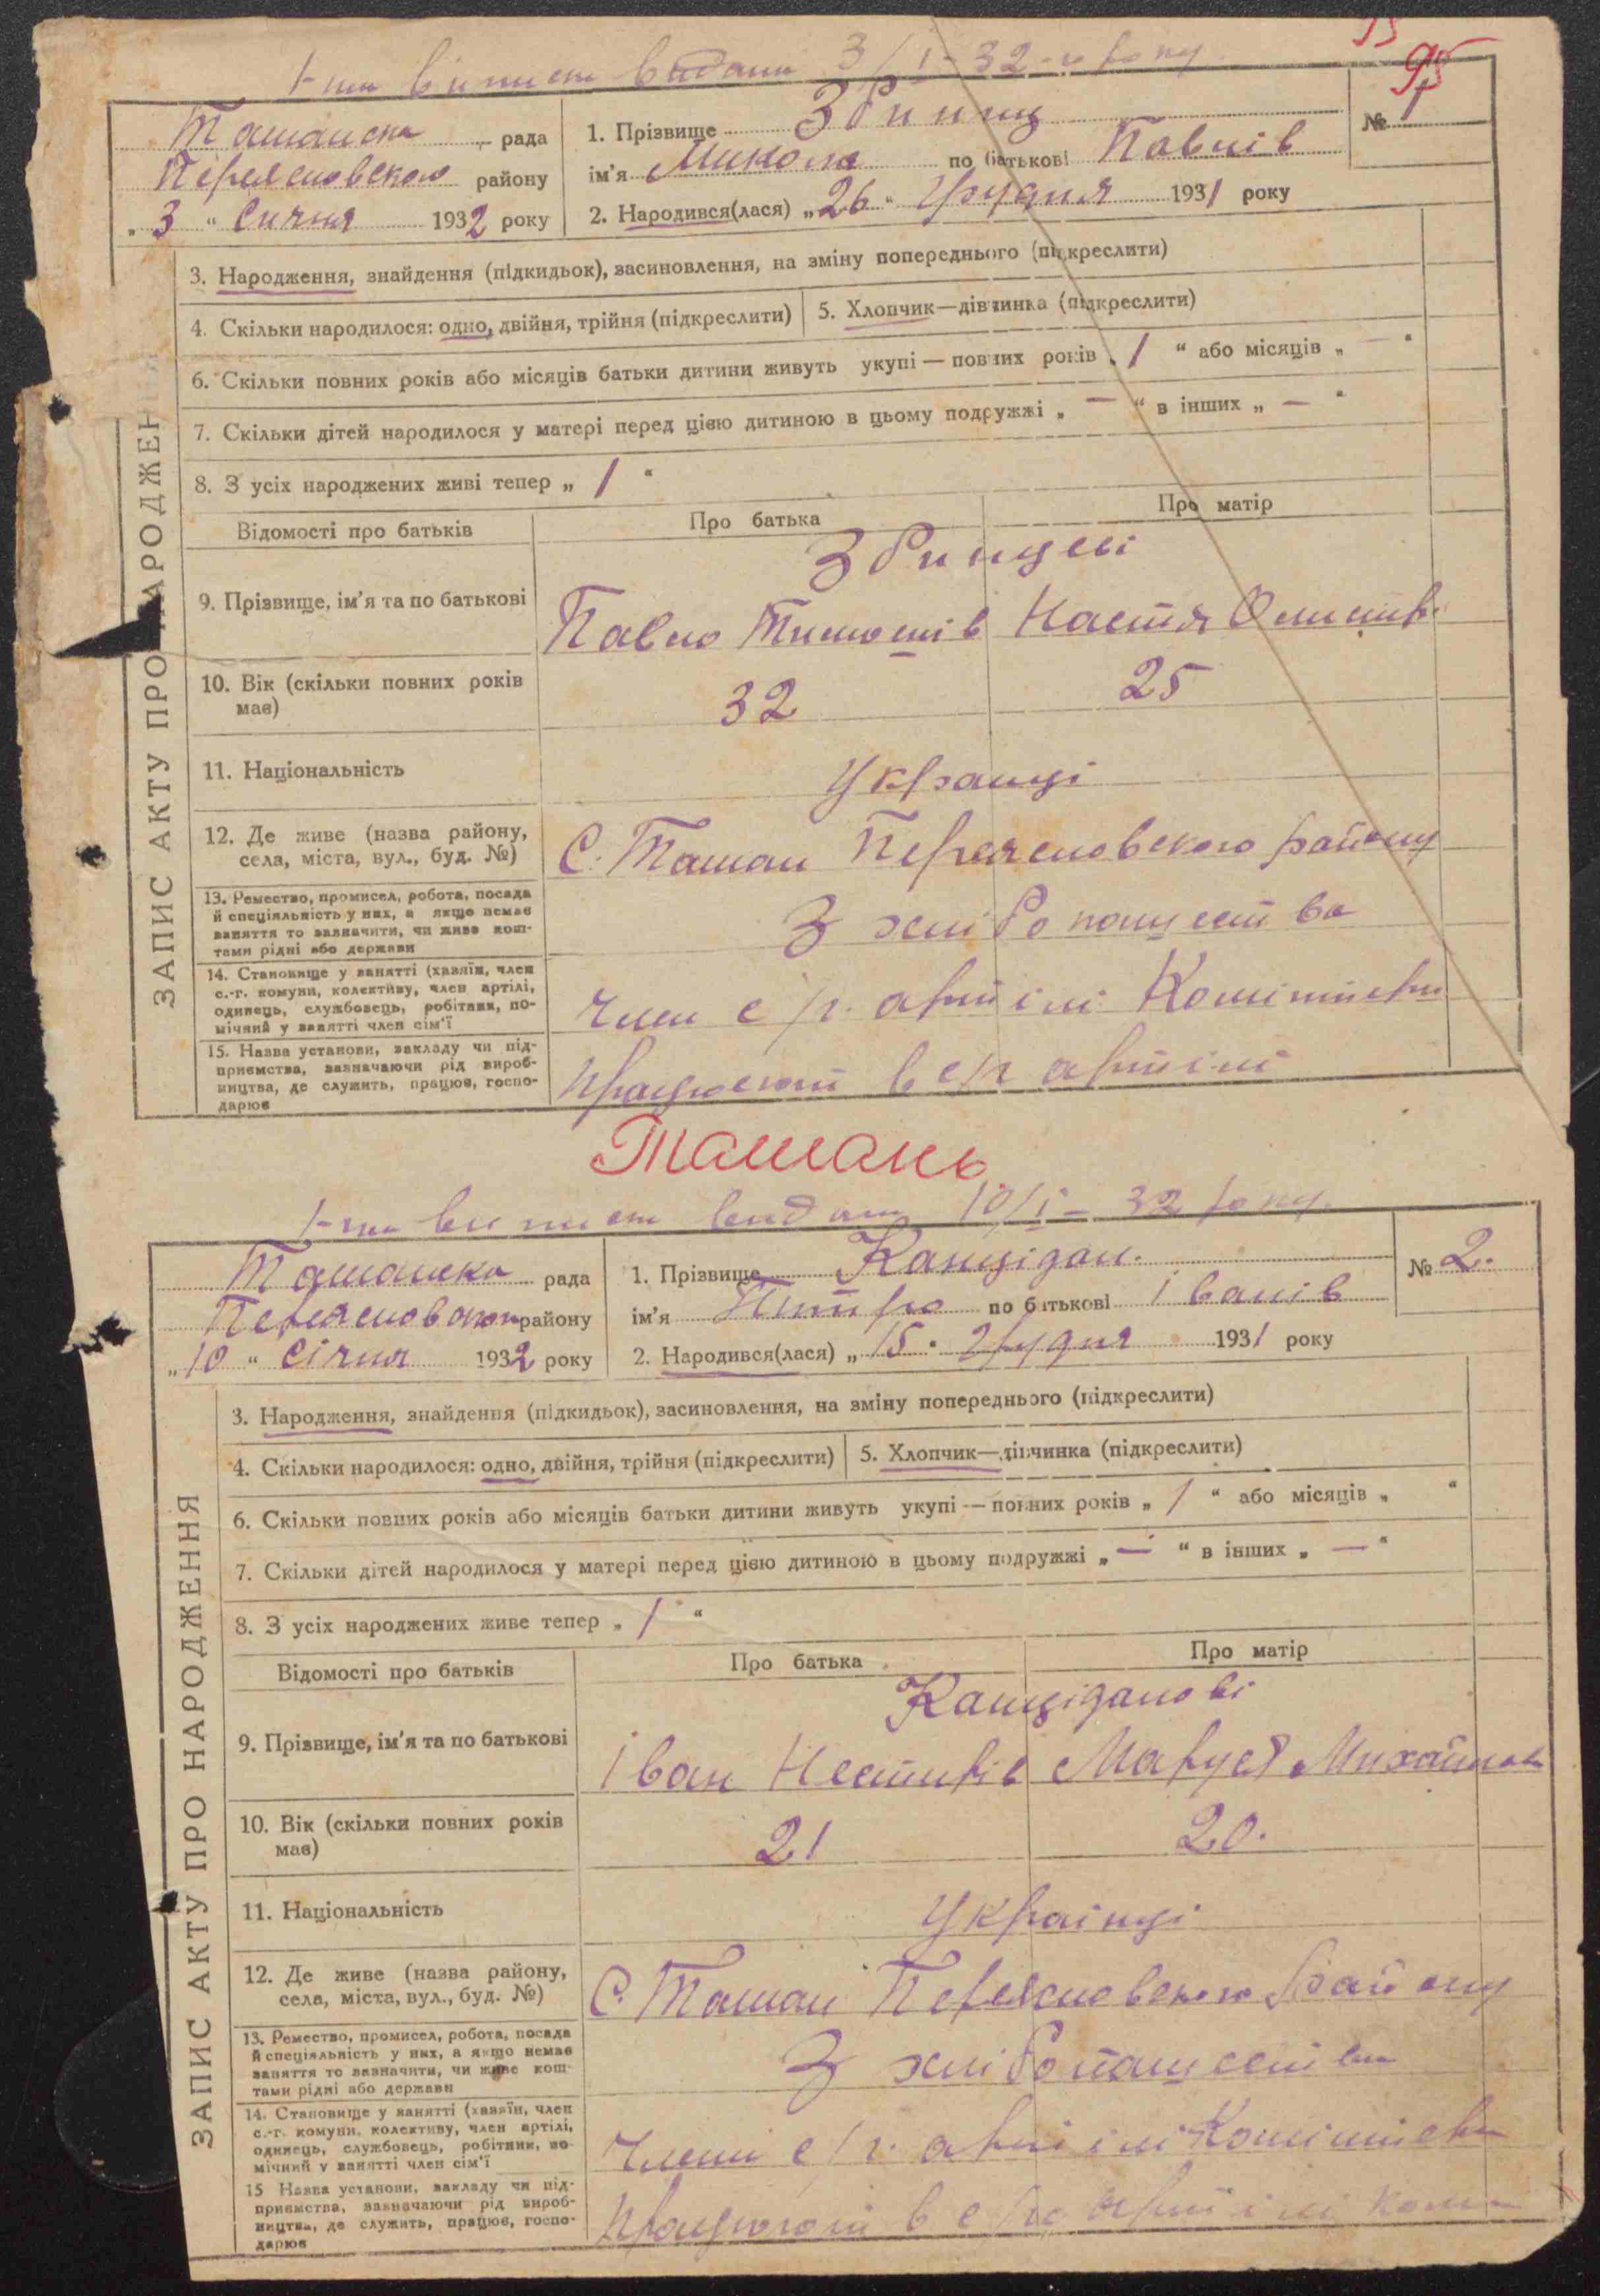 видани 3/I-32-го року
95
Ташанска рада
Переяславского району
„3“ Сичня 1932 року
1. Прізвище Збинищ
ім'я Микола по батькові Павлів
2. Народився(лася) „26“ Грудня 1931 року
№ 1
ЗАПИС АКТУ ПРО НАРОДЖЕН
3. Народження, знайдення (підкидьок), засиновлення, на зміну попереднього (підкреслити)
4. Скільки народилося: одно, двійня, трійня (підкреслити)
5. Хлопчик—дівчинка (підкреслити)
6. Скільки повних років або місяців батьки дитини живуть укупі — повних років „1“ або місяців „—“
7. Скільки дітей народилося у матері перед цією дитиною в цьому подружжі „—“ в інших „—“
8. З усіх народжених живі тепер „1“
Відомості про батьків
Про батька
Про матір
9. Прізвище, ім'я та по батькові
Павло Тимошів Настя
10. Вік (скільки повних років
має)
32 25
11. Національність
Украінці
12. Де живе (назва району,
села, міста, вул., буд. №)
С. Ташан Переясловского району
13. Ремество, промисел, робота, посада
й спеціяльність у них, а якщо немає
заняття то зазначити, чи живе кош-
тами рідні або держави
З хлібопашества
14. Становище у занятті (хазяїн, член
с.-г. комуни, колективу, член артілі,
одинець, службовець, робітник, по-
мічний у занятті член сім'ї
Член с/г. артілі Комінтерн
15. Назва установи, закладу чи під-
приємства, зазначаючи рід вироб-
ництва, де служить, працює, госпо-
дарює
Працюют в с/г артілі
Ташань
10/I-32 року.
Ташанска рада
Переясловского району
„10“ Січня 1932 року
1. Прізвище Канцідал.
ім'я Питро по батькові Іванів
2. Народився(лася) „15“ Грудня 1931 року
№ 2.
ЗАПИС АКТУ ПРО НАРОДЖЕННЯ
3. Народження, знайдення (підкидьок), засиновлення, на зміну попереднього (підкреслити)
4. Скільки народилося: одно, двійня, трійня (підкреслити)
5. Хлопчик—дівчинка (підкреслити)
6. Скільки повних років або місяців батьки дитини живуть укупі — повних років „1“ або місяців „ “
7. Скільки дітей народилося у матері перед цією дитиною в цьому подружжі „—“ в інших „—“
8. З усіх народжених живе тепер „1“
Відомості про батьків
Про батька
Про матір
Канцідалові
9. Прізвище, ім'я та по батькові
Іван Нестирів Маруся Михайлов
10. Вік (скільки повних років
має)
21 20.
11. Національність
Украінці
12. Де живе (назва району,
села, міста, вул., буд. №)
С. Ташан Переясловского Району
13. Ремество, промисел, робота, посада
й спеціяльність у них, а якщо немає
заняття то зазначити, чи живе кош-
тами рідні або держави
З хлібопашества
14. Становище у занятті (хазяїн, член
с.-г. комуни, колективу, член артілі,
одинець, службовець, робітник, по-
мічний у занятті член сім'ї
Члени с/г. артілі Комінтерн
15 Назва установи, закладу чи під-
приємства, зазначаючи рід вироб-
ництва, де служить, працює, госпо-
дарює
Працюют в с/го артілі